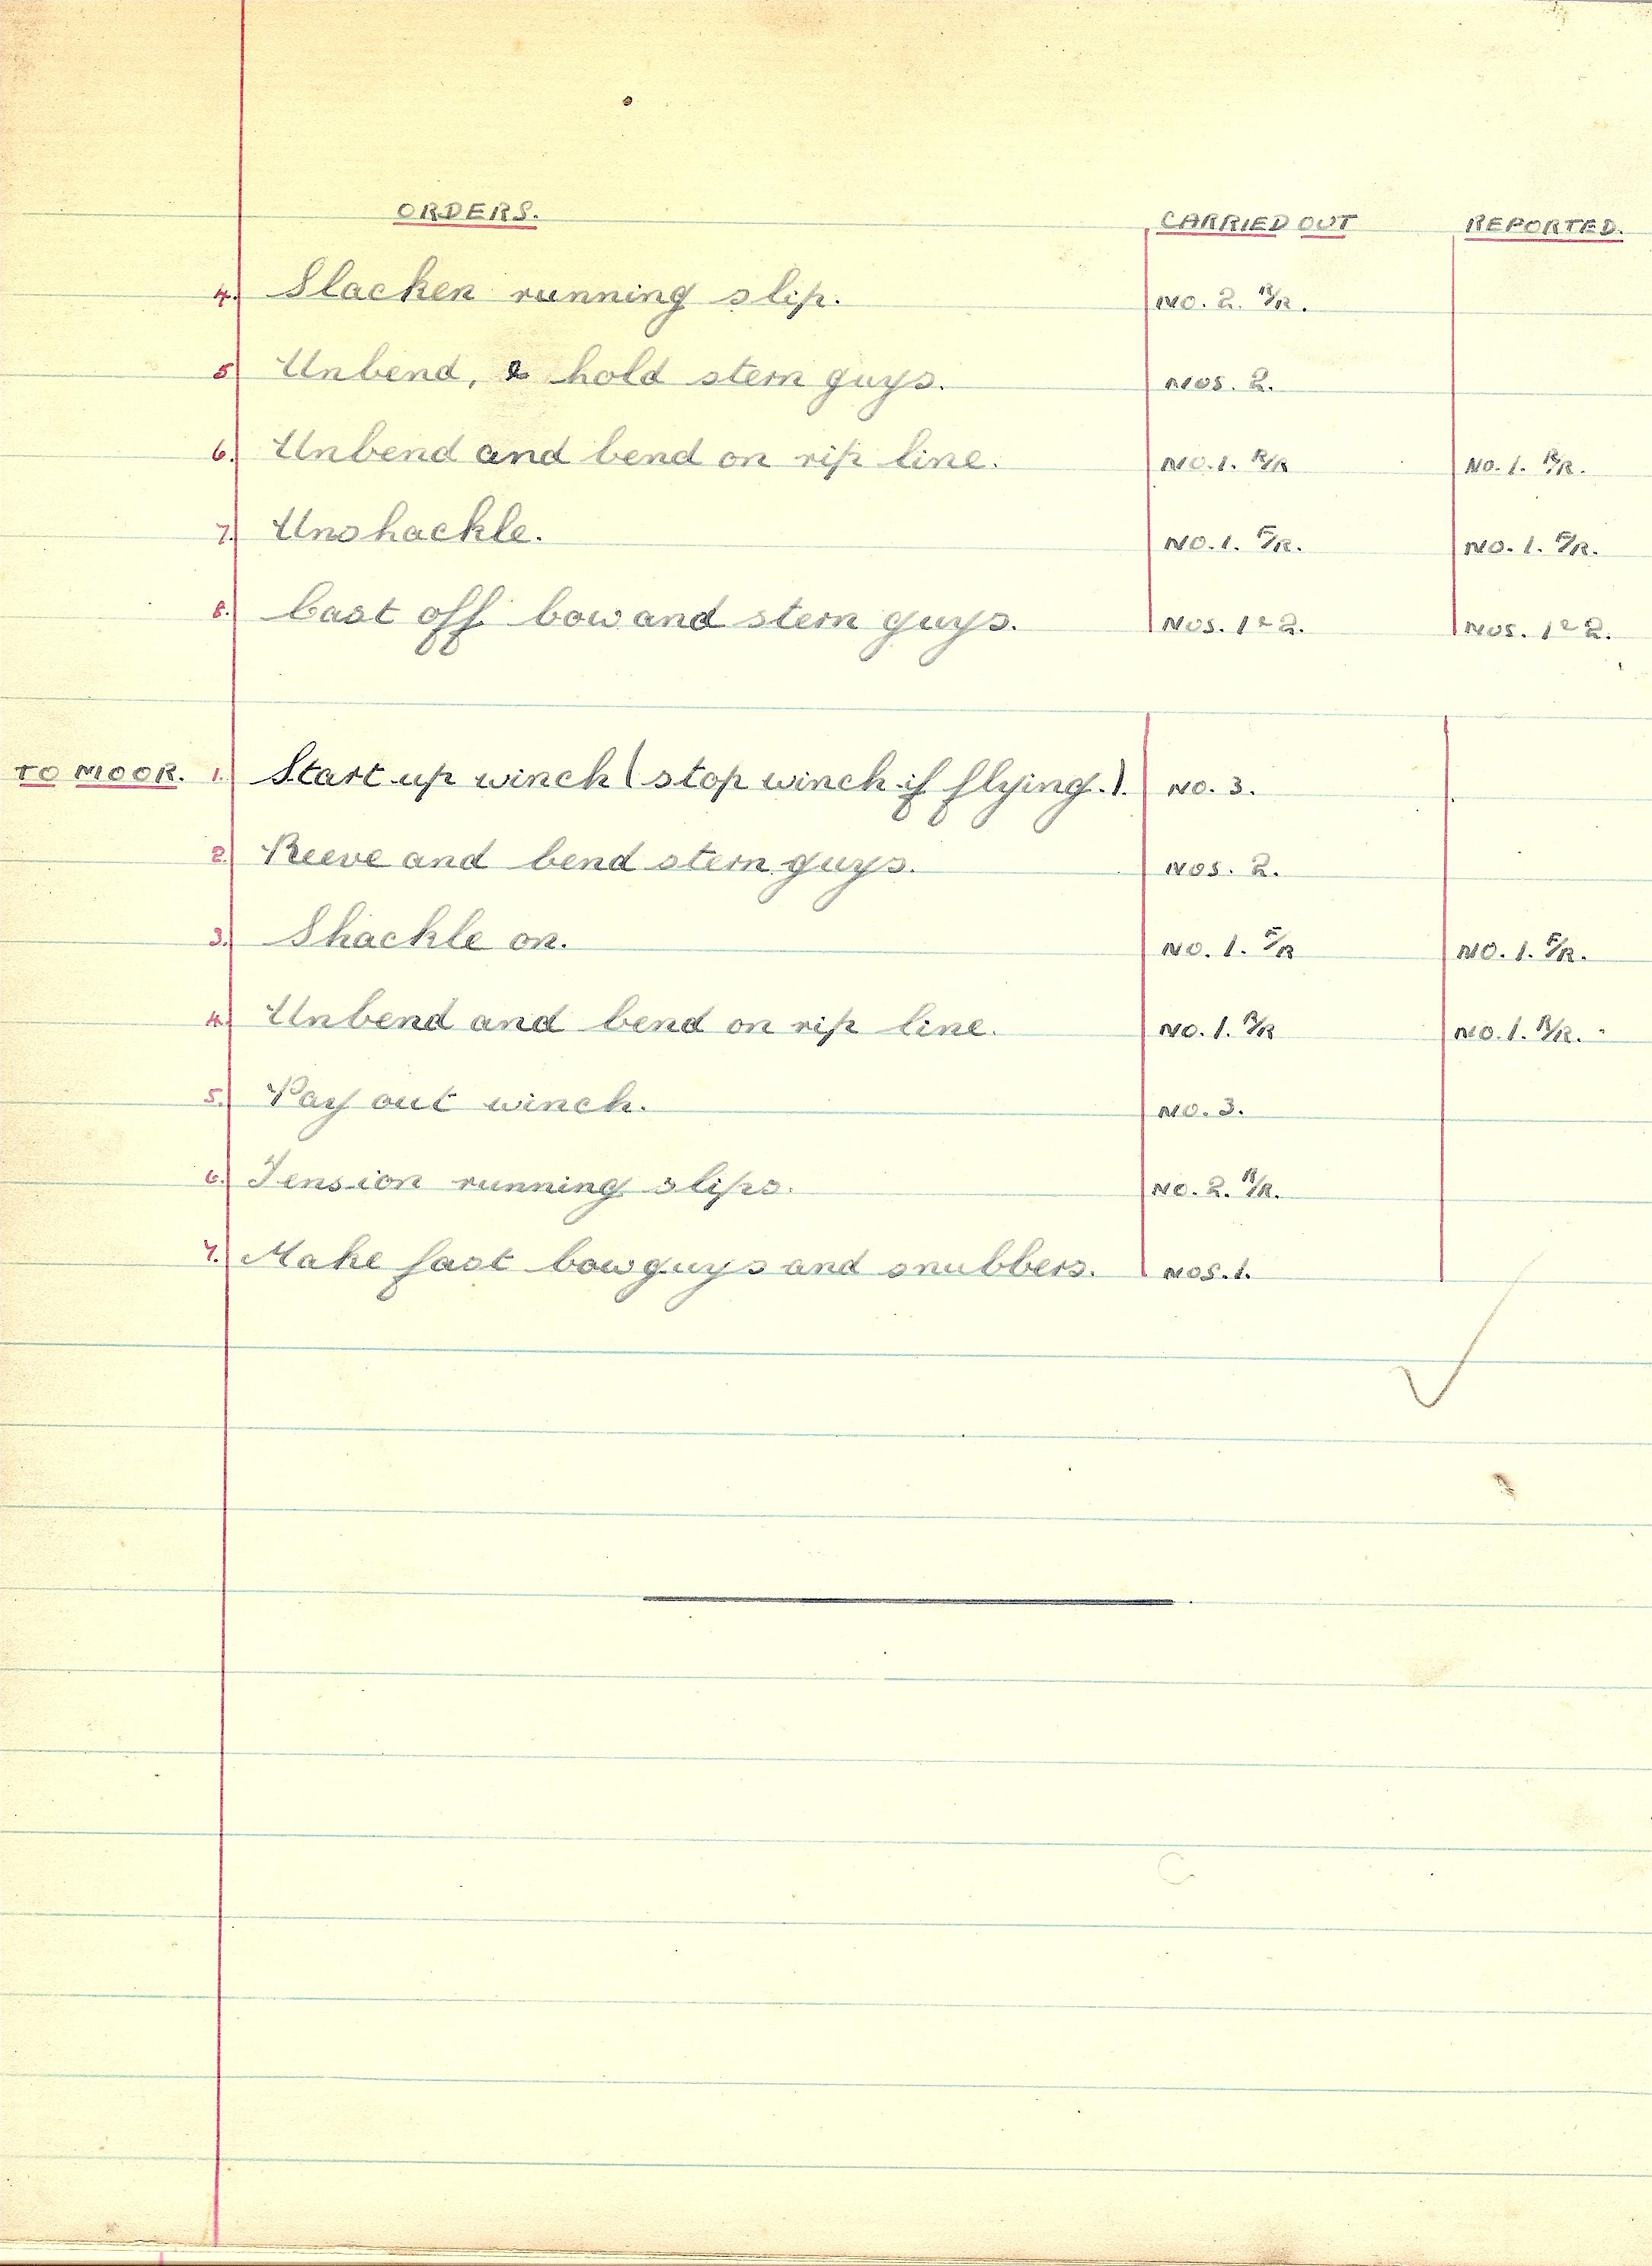 ORDERS. CARRIED OUT REPORTED.
4. Slacken running slip. NO. 2. R/R.
5. Unbend, & hold stern guys. NOS. 2.
6. Unbend and bend on rip line. NO. 1. R/R NO. 1. R/R.
7. Unshackle. NO. 1. F/R. NO. 1. F/R.
8. Cast off bow and stern guys. NOS. 1 & 2. NOS. 1 & 2.
TO MOOR. 1. Start up winch (stop winch if flying.). NO. 3.
2. Reeve and bend stern guys. NOS. 2.
3. Shackle on. NO. 1. F/R NO. 1. F/R.
4. Unbend and bend on rip line. NO. 1. R/R NO. 1. R/R.
5. Pay out winch. NO. 3.
6. Tension running slips. NO. 2. R/R.
7. Make fast bow guys and snubbers. NOS. 1.